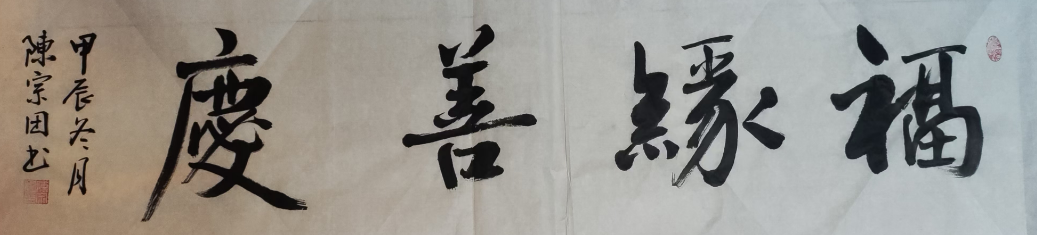 福緣善慶
甲辰冬月
陳宗因书